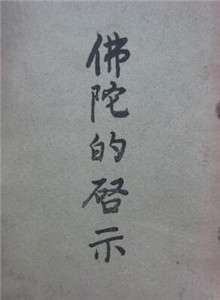 佛陀的啓示